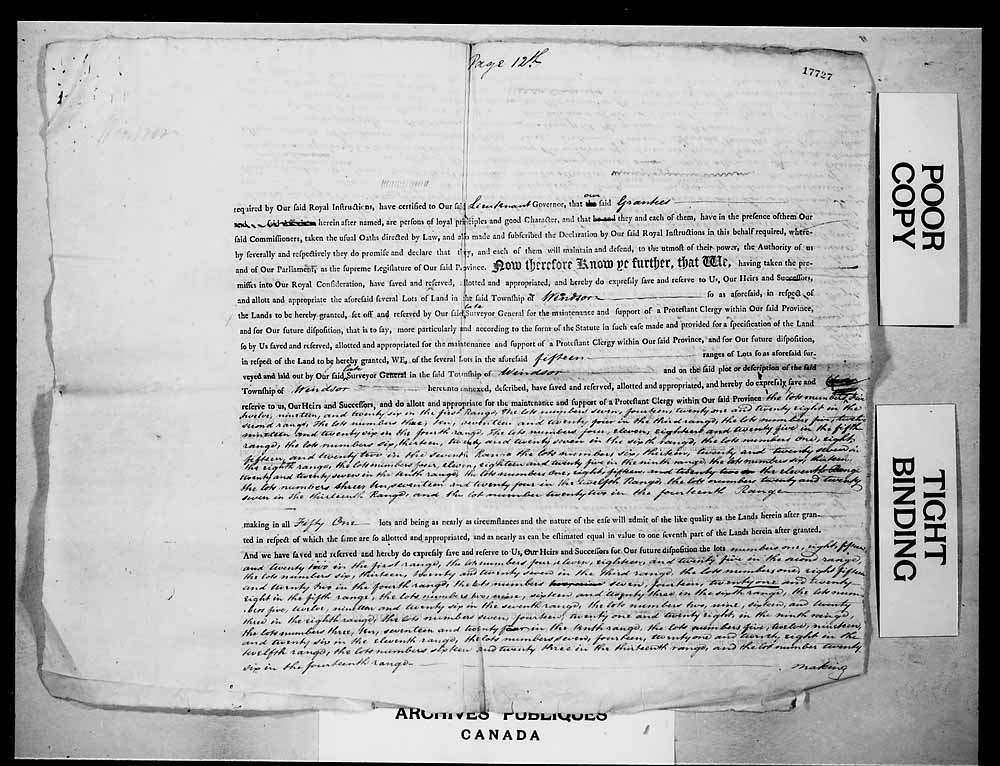 Page 12th
17727
required by Our said Royal Instructions, have certified to Our said Lieutenant Governor, that our said Grantees
herein after named, are persons of loyal principles and good Character, and that they and each of them, have in the presence of them Our
said Commissioners, taken the usual Oaths directed by Law, and also made and subscribed the Declaration by Our said Royal Instructions in this behalf required, where-
by severally and respectively they do promise and declare that they, and each of them will maintain and defend, to the utmost of their power, the Authority of us
and of Our Parliament, as the supreme Legislature of Our said Province. Now therefore Know ye further, that We, having taken the pre-
misses into Our Royal Consideration, have saved and reserved, allotted and appropriated, and hereby do expressly save and reserve to Us, Our Heirs and Successors,
and allot and appropriate the aforesaid several Lots of Land in the said Township of Windsor so as aforesaid, in respect of
the Lands to be hereby granted, set off and reserved by Our said late Surveyor General for the maintenance and support of a Protestant Clergy within Our said Province,
and for Our future disposition, that is to say, more particularly and according to the form of the Statute in such case made and provided for a specification of the Land
so by Us saved and reserved, allotted and appropriated for the maintenance and support of a Protestant Clergy within Our said Province, and for Our future disposition,
in respect of the Land to be hereby granted, WE, of the several Lots in the aforesaid fifteen ranges of Lots so as aforesaid sur-
veyed and laid out by Our said late Surveyor General in the said Township of Windsor and on the said plot or description of the said
Township of Windsor hereunto annexed, described, have saved and reserved, allotted and appropriated, and hereby do expressly save and
reserve to us, Our Heirs and Successors, and do allot and appropriate for the maintenance and support of a Protestant Clergy within Our said Province the lots numbers five
twelve, nineteen, and twenty six in the first Range, the lots numbers seven, fourteen, twenty one and twenty eight in the
second range, the lots numbers three, ten, seventeen and twenty four in the third range, the lots numbers five, twelve
nineteen and twenty six in the fourth range, the lots numbers four, eleven, eighteen and twenty five in the fifth
range, the lots numbers six, thirteen, twenty and twenty seven in the sixth range, the lots numbers one, eight,
fifteen, and twenty two in the seventh Range the lots numbers six, thirteen, twenty and twenty seven in
the eighth range, the lots numbers four, eleven, eighteen and twenty five in the ninth range, the lots numbers six, thirteen
twenty and twenty seven in the tenth range, the lots numbers one, eight fifteen and twenty two in the eleventh Range
the lots numbers three ten seventeen and twenty four in the twelfth Range the lots numbers twenty and twenty
seven in the thirteenth Range and the lot number twenty two in the fourteenth Range
making in all Fifty One lots and being as nearly as circumstances and the nature of the case will admit of the like quality as the Lands herein after gran-
ted in respect of which the same are so allotted and appropriated, and as nearly as can be estimated equal in value to one seventh part of the Lands herein after granted,
And we have saved and reserved and hereby do expressly save and reserve to Us, Our Heirs and Successors for Our future disposition the lots numbers one, eight, fifteen,
and twenty two in the first range, the lots numbers four, eleven, eighteen, and twenty five in the second range,
the lots numbers six, thirteen, twenty and twenty seven in the third range, the lots numbers one, eight fifteen
and twenty two in the fourth range, the lots numbers seven, fourteen, twenty one and twenty
eight in the fifth range, the lots numbers two, nine, sixteen and twenty three in the sixth range, the lots num-
bers five, twelve, nineteen and twenty six in the seventh range, the lots numbers two, nine, sixteen, and twenty
three in the eighth range, the lots numbers seven, fourteen, twenty one and twenty eight, in the ninth range,
the lots numbers three, ten, seventeen and twenty four in the tenth range, the lots numbers five, twelve, nineteen,
and twenty six in the eleventh range, the lots numbers seven, fourteen, twenty one and twenty eight in the
twelfth range, the lots numbers sixteen and twenty three in the thirteenth range, and the lot number twenty
six in the fourteenth range.
making
POOR
COPY
TIGHT
BINDING
ARCHIVES PUBLIQUES
CANADA